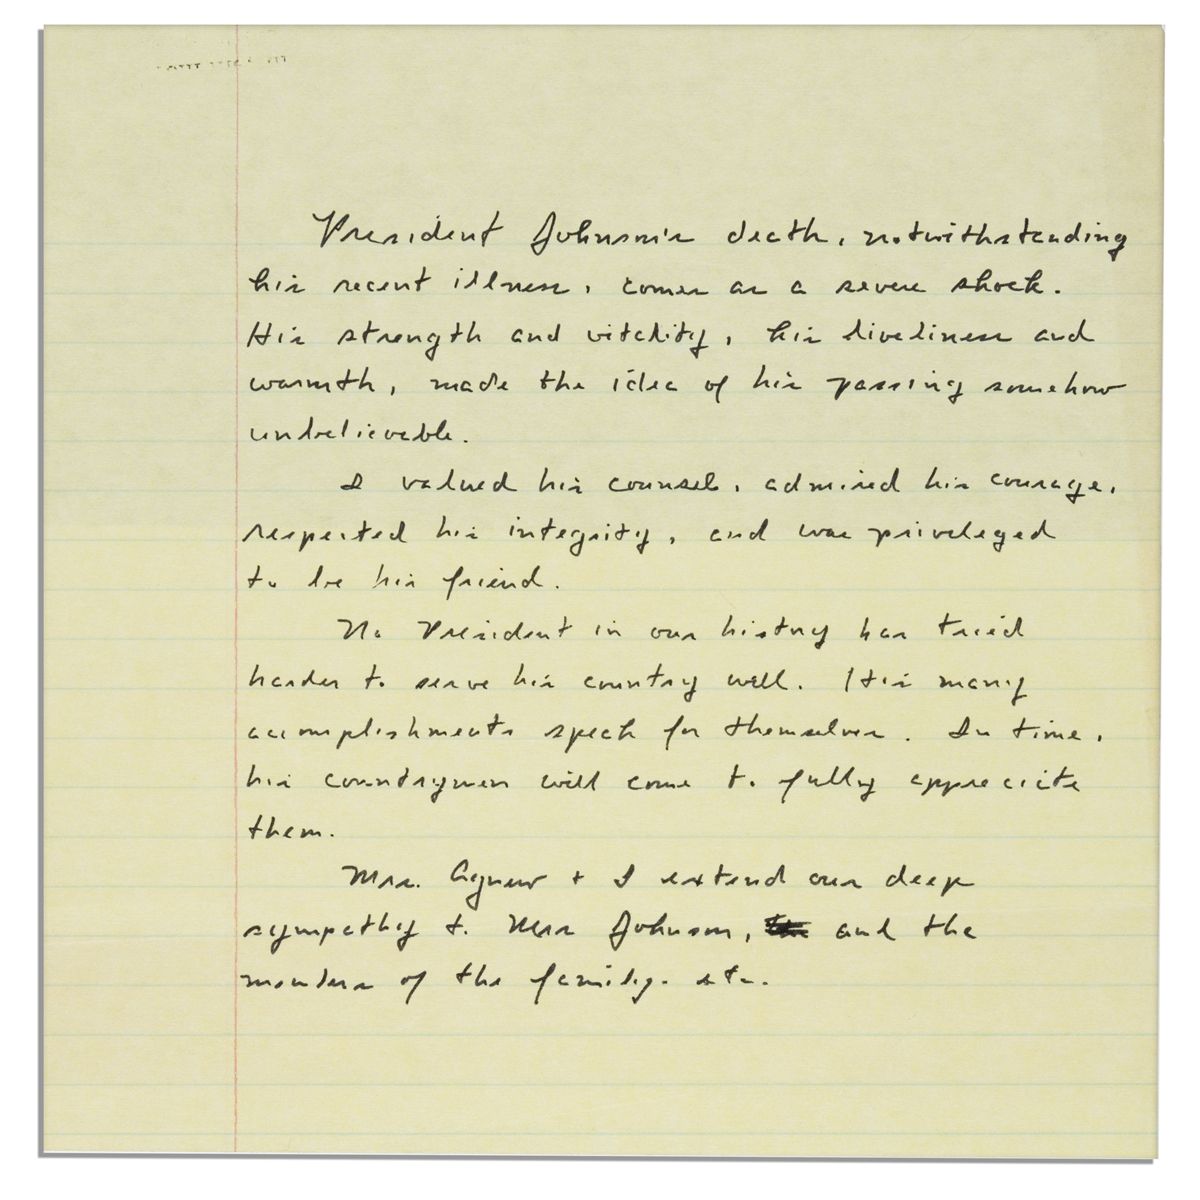 President Johnson's death, notwithstanding
his recent illness, comes as a severe shock.
His strength and vitality, his liveliness and
warmth, made the idea of his passing somehow
unbelievable.
I valued his counsel, admired his courage,
respected his integrity, and was privileged
to be his friend.
No President in our history has tried
harder to serve his country well. His many
accomplishments speak for themselves. In time,
his countrymen will come to fully appreciate
them.
Mrs. Agnew + I extend our deep
sympathy to Mrs Johnson, and the
members of the family. etc.